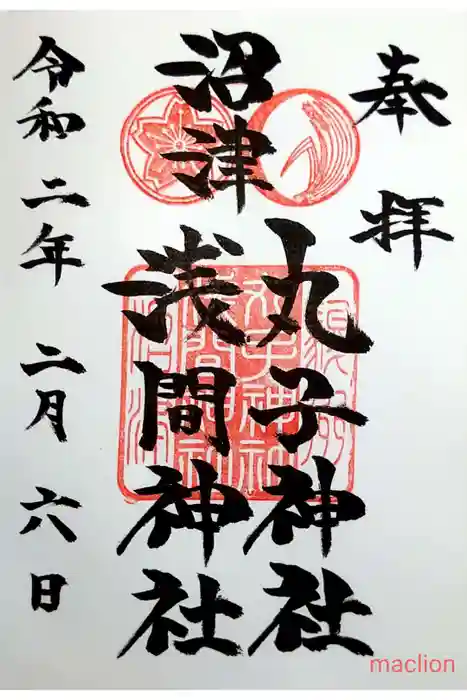 奉拝
沼津
丸子神社
浅間神社
令和二年二月六日
maclion